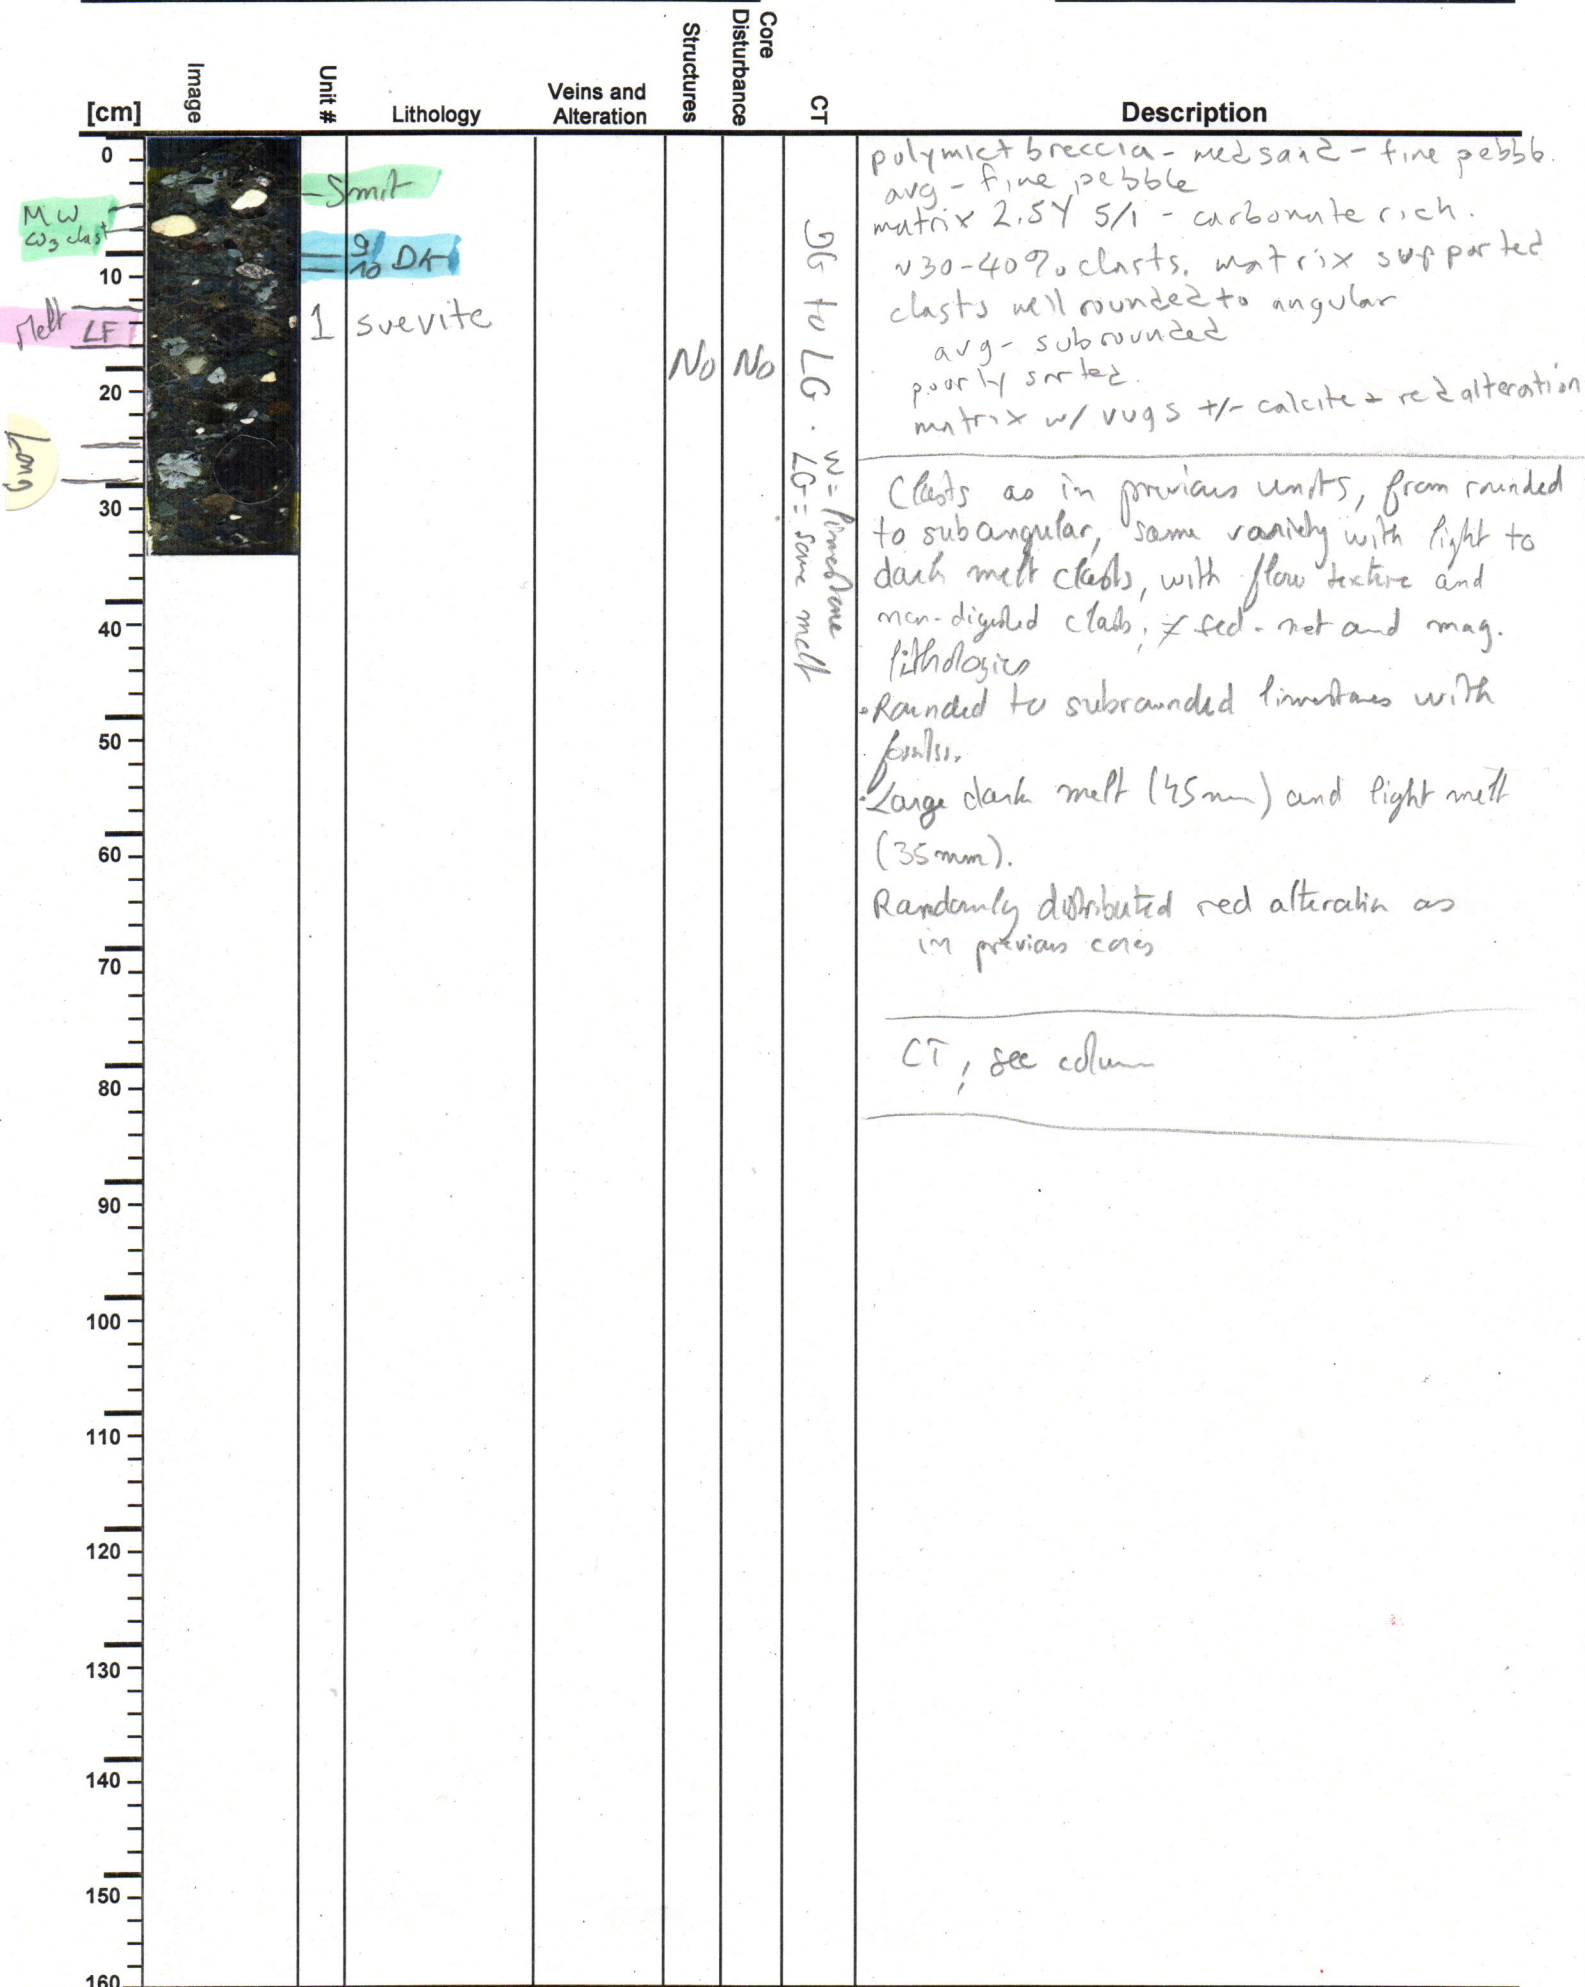 [cm]
Image
Unit #
Lithology
Veins and
Alteration
Structures
Core
Disturbance
CT
Description
0
10
20
30
40
50
60
70
80
90
100
110
120
130
140
150
160
MW
CO3 clast
Melt LF
Long
Smit
9
10 DK
1 suevite
No
No
DG to LG. W = limestone
LG = some melt
polymict breccia - med sand - fine pebbb.
avg - fine pebble
matrix 2.5Y 5/1 - carbonate rich.
~30-40% clasts. matrix supported
clasts well rounded to angular
avg - subrounded
poorly sorted.
matrix w/ vugs +/- calcite + red alteration
Clasts as in previous units, from rounded
to subangular, same variety with light to
dark melt clasts, with flow texture and
non-digested clasts, ≠ sed-met and mag.
lithologies
• Rounded to subrounded limestones with
fossils.
• Large dark melt (45mm) and light melt
(35mm).
Randomly distributed red alteration as
in previous cores
CT, see column